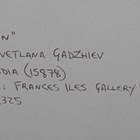 N"
VETLANA GADZHIEV
DIA (15878)
: FRANCES ILES GALLERY
325